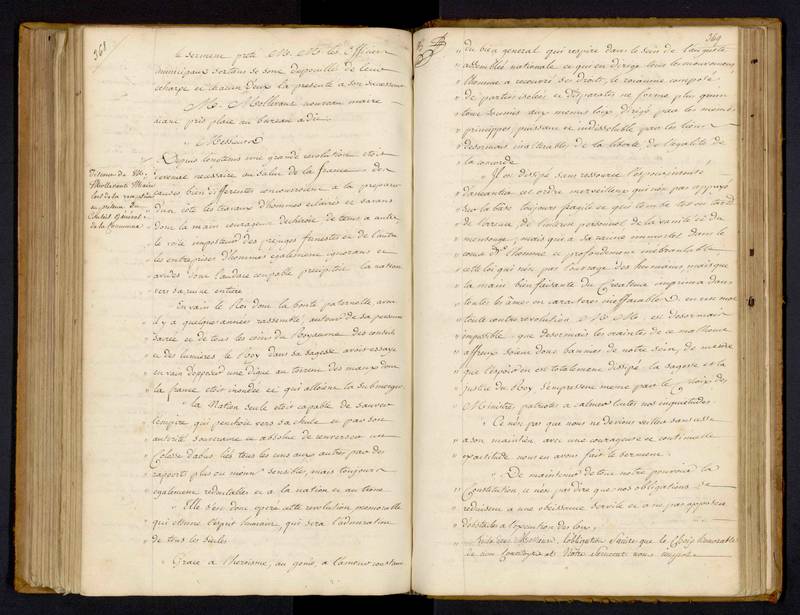 361
le serment prêté M. M. les officiers
municipaux sortans se sont depouillés de leur
echarpe et chacun d'eux la presenté a son successeur
M. Mollevaut nouveau maire
aiant pris place au bureau a dit
Messieurs
Discours de M.
Mollevaut Maire
lors de la
en presence du
Conseil General
de la Commune
Depuis longtems une grande revolution etoit
devenue necessaire au salut de la france; deux
causes bien differentes concouroient a la preparer
d'un côté les travaux d'hommes eclairés et savans
dont la main courageuse dechiroit de tems a autre
le voile imposteur des prejugés funestes et de l'autre
les entreprises d'hommes egalement ignorans et
avides dont l'audace coupable precipitoit la nation
vers sa ruine entiere
En vain le Roi dont la bonté paternelle, avoit
il y a quelques années rassemblé, autour de sa personne
sacrée et de tous les coins du Royaume des conseils
et des lumieres le Roy dans sa sagesse avoit essayé
en vain d'opposer une digue au torrent des maux dont
la france etoit inondée et qui alloient la submerger
la Nation seule etoit capable de sauver
l'empire qui penchoit vers sa chute et par son
autorité souveraine et absolue de renverser un
Colosse d'abus liés tous les uns aux autres par des
rapports plus ou moins sensibles, mais toujours
egalement redoutables et a la nation et au trone
Elle s'est donc operée cette revolution memorable
qui etonne l'esprit humain, qui sera l'admiration
de tous les siecles
Grace a l'heroisme, au genie, a l'amour constant
364
du bien general qui respire dans le sein de l'auguste
assemblée nationale et qui en dirige tous les mouvemens,
l'homme a recouvré ses droits, le royaume composé
de parties isolées et disparates ne forme plus qu'un
tout soumis aux memes loix dirigé par les memes
principes, puissant et indissoluble par les liens
desormais inalterables de la liberté, de l'egalité de
la concorde
Il est desja sans ressource l'espoir insensé
d'aneantir cet ordre merveilleux qui n'est pas appuyé
sur la base toujours fragile et qui tombe tot ou tard
de l'erreur, de l'interet personnel, de la vanité et du
mensonge; mais qui a sa racine immortelle dans le
coeur de l'homme et profondement inébranlable
cette loi qui n'est pas l'ouvrage des humains mais que
la main bienfaisante du Createur imprima dans
toutes les âmes en caracteres ineffacables. en un mot
toute contre revolution M. M. est desormais
impossible que desormais les craintes de ce malheur
affreux soient donc bannies de notre sein, de meme
que l'espoir en est totalement dissipé la sagesse et la
justice du Roy s'empressent meme par le choix des
Ministres patriotes a calmer toutes nos inquietudes
Ce n'est pas que nous ne devions veiller sans cesse
a son maintien avec une courageuse et continuelle
exactitude nous en avons fait le serment
De maintenir de tout notre pouvoir la
Constitution, ce n'est pas dire que nos obligations se
reduisent a une obeissance servile et a ne pas apporter
d'obstacles a l'execution des loix,
Messieurs l'obligation sacrée que le Choix honorable
de nos Concitoyens et Notre Serment nous impose